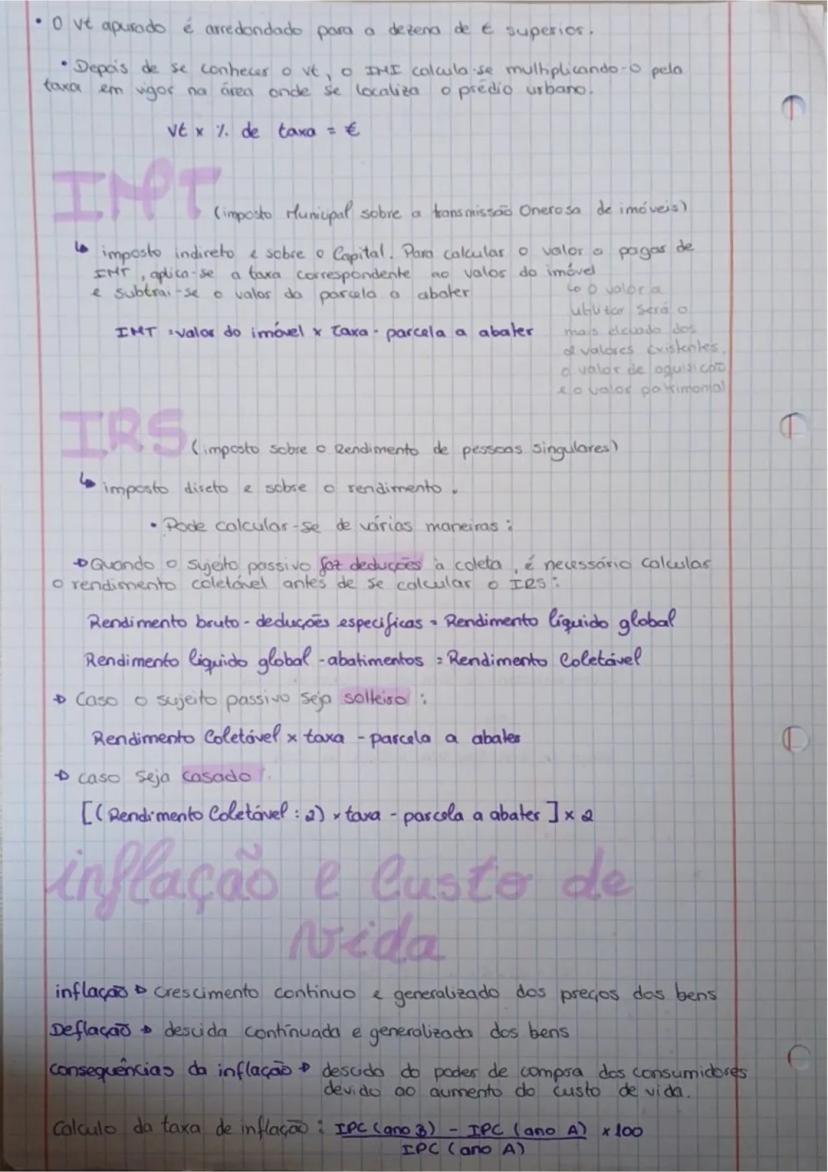 • O Vt apurado é arredondado para a dezena de € superior.
• Depois de se conhecer o Vt, o IMI calcula-se multiplicando-o pela
taxa em vigor na área onde se localiza o prédio urbano.
Vt x % de taxa = €
IMT (imposto Municipal sobre a transmissão Onerosa de imóveis)
↳ imposto indireto e sobre o Capital. Para calcular o valor a pagar de
IMT, aplica-se a taxa correspondente ao valor do imóvel
e subtrai-se o valor da parcela a abater
↳ o valor a
utilizar será o
mais elevado dos
2 valores existentes,
o valor de aquisição
e o valor patrimonial
IMT = valor do imóvel x Taxa - parcela a abater
IRS (imposto sobre o Rendimento de pessoas singulares)
↳ imposto direto e sobre o rendimento.
• Pode calcular-se de várias maneiras:
→ Quando o sujeito passivo faz deduções à coleta, é necessário calcular
o rendimento coletável antes de se calcular o IRS:
Rendimento bruto - deduções especificas = Rendimento líquido global
Rendimento líquido global - abatimentos = Rendimento Coletável
→ Caso o sujeito passivo seja solteiro:
Rendimento Coletável x taxa - parcela a abater
→ caso seja casado:
[(Rendimento Coletável : 2) x taxa - parcela a abater] x 2
inflação e Custo de
vida
inflação → Crescimento contínuo e generalizado dos preços dos bens
Deflação → descida continuada e generalizada dos bens
Consequências da inflação → descida do poder de compra dos consumidores
devido ao aumento do custo de vida.
Calculo da taxa de inflação: IPC (ano B) - IPC (ano A) x 100
IPC (ano A)